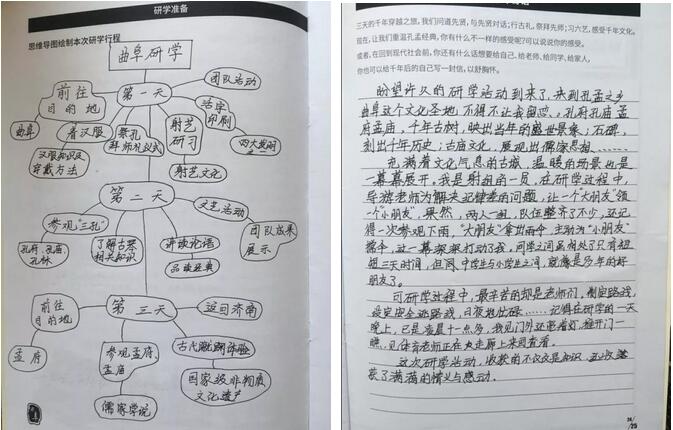 研学准备
思维导图绘制本次研学行程
曲阜研学
第一天
团队活动
前往
目的地
曲阜
着汉服
汉服知识及
穿戴方法
祭孔
拜师礼仪式
射艺
研习
射艺文化
活字
印刷
四大发明
第二天
文艺活动
团队成果
展示
参观“三孔”
孔府、孔庙、
孔林
了解古蔡
相关知识
讲读论语
品读经典
第三天
返回济南
前往
目的地
孟府
参观孟府、
孟庙
儒家学说
古代雕刻体验
国家级非物质
文化遗产
三天的千年穿越之旅,我们问道先贤,与先贤对话;行古礼,祭拜先师;习六艺,感受千年文化。
现在,让我们重温孔孟经典,你有什么不一样的感受呢?可以说说你的感受。
或者,在回到现代社会前,你还有什么话想要给自己、给老师、给同学、给家人,
你也可以给千年后的自己写一封信,以舒胸怀。
盼望许久的研学活动到来了,来到孔孟之乡
曲阜这个文化圣地,不得不让我留恋。孔府孔庙孟
府孟庙,千年古树,映出当年的盛世景象;石碑,
刻出千年历史;古庙文化,展现出儒家思想……
充满着文化气息的古城,温暖的场景也是
一幕幕展开。我是射组的一员,在研学过程中,
导游老师为解决纪律差的问题,让一个“大朋友”领
一个“小朋友”,果然,两人一组,队伍整齐了不少,还记
得一次参观下雨,“大朋友”拿出雨伞,主动为“小朋友”
撑伞,这一幕深深打动了我,同学之间虽相处了只有短
短三天时间,但中学生与小学生之间,就像是多年的好
朋友了。
可研学过程中,最辛苦的却是老师们,制定路线,
设定安全逃路线,日夜地忙碌……记得在研学的一天
晚上,已是凌晨十一点多,我见门外还亮着灯,推开门一
瞧,见体育老师正在走廊上来回查看。
这次研学活动,收获的不仅仅是知识,还收
获了满满的情义与感动。
24
25